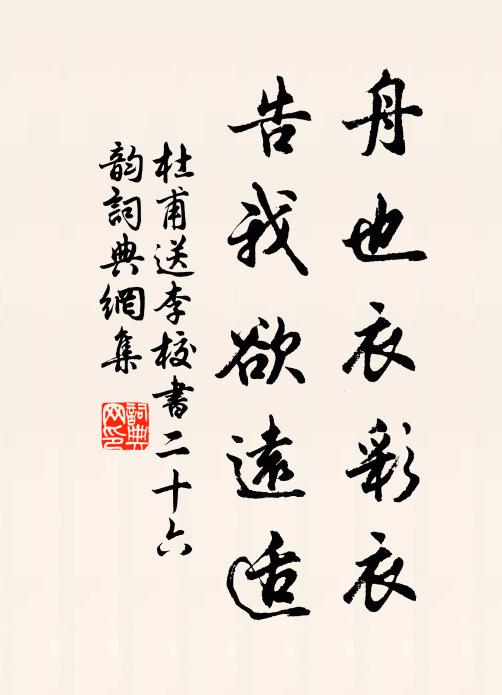 舟也衣彩衣
告我欲遠适
杜甫送李校書二十六
韵詞典網集
詞典
网印